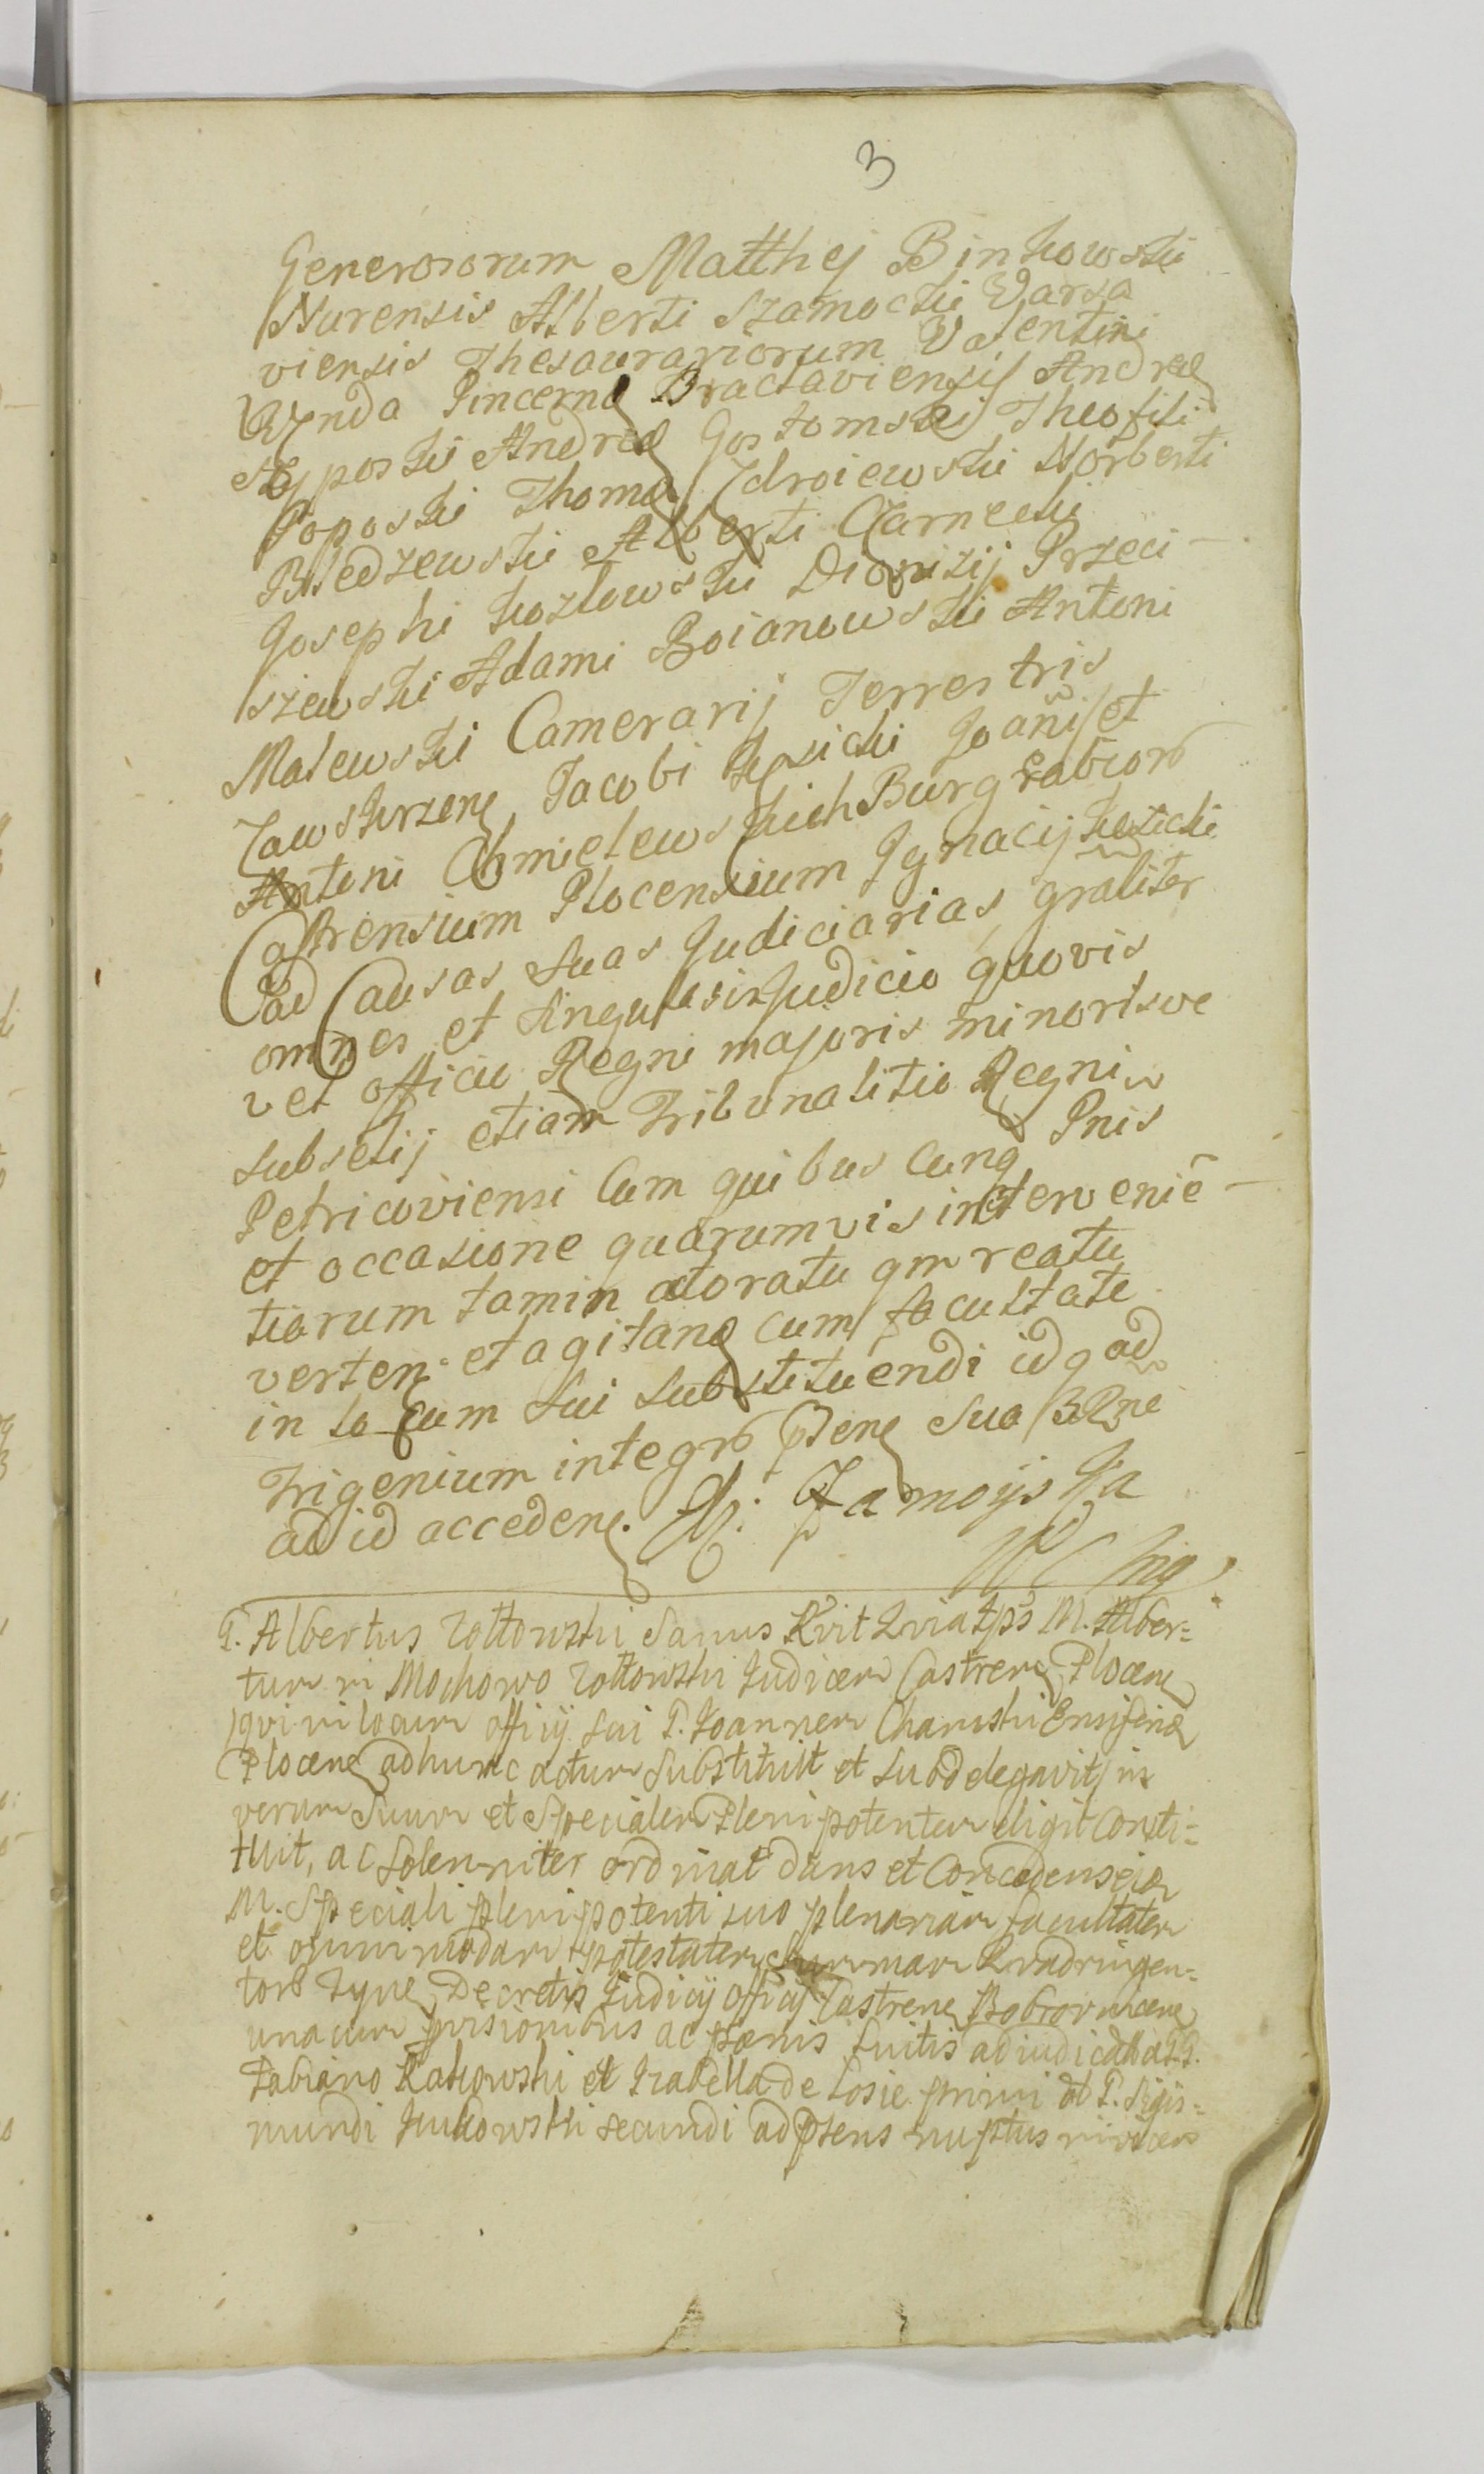 3
Generosorum Matthej Binkowski
Nurensis Alberti Szamocki Varsa
viensis Thesaurariorum Valentini
Wynda Pincernæ Bractaviensis Andreæ
Andreæ Gostomski Theofili
Poposki Thomæ Zdroiewski Norberti
Bledzewski Alberti Czarnecki
Josephi Kozlowski Dionisij Przeci-
szewski Adami Boianowski Antoni
Malewski Camerarij Terrestris
Zawskrzene Jacobi Joanis et
Antoni Chmielewskich Burgrabior
Castrensium Plocensium Ignacij
ad Causas suas Judiciarias graliter
omnes et singulas in Judicio quovis
vel officio Regni majoris minorisve
subselij etiam Tribunalitio Regni
Petricoviensi Cum quibus cunq Pnis
et occasione quarumvis intervenie-
tiarum tam in actoratu qm reatu
verten et agitane cum facultate
in locum sui substituendi idq ad
Trigenium integr Pene sua
ad id accedene. Zamoyska

G. Albertus Zoltowski Sanus M. Alber=
tum in Mochowo Zoltowski Judicem Castrene Plocene
qui in locum officij sui G. Joannem Chamski Ensiferæ
Plocene ad hunc actum Substituit et subdelegavit, in
verum Suum et Specialem Plenipotentem eligit Consti=
tuit, ac Solenniter ordinat dans et Concedens
M. Speciali plenipotenti suo plenariam facultatem
et omnimodam potestatem Summam Quadringen=
tor Decretis Judicij Officij Castrene Bobrovnicene
unacum provisionibus ac pœnis luitis
Fabiano Rakowski et Izabella de Losie primi
mundi secundi ad Psens nuptus